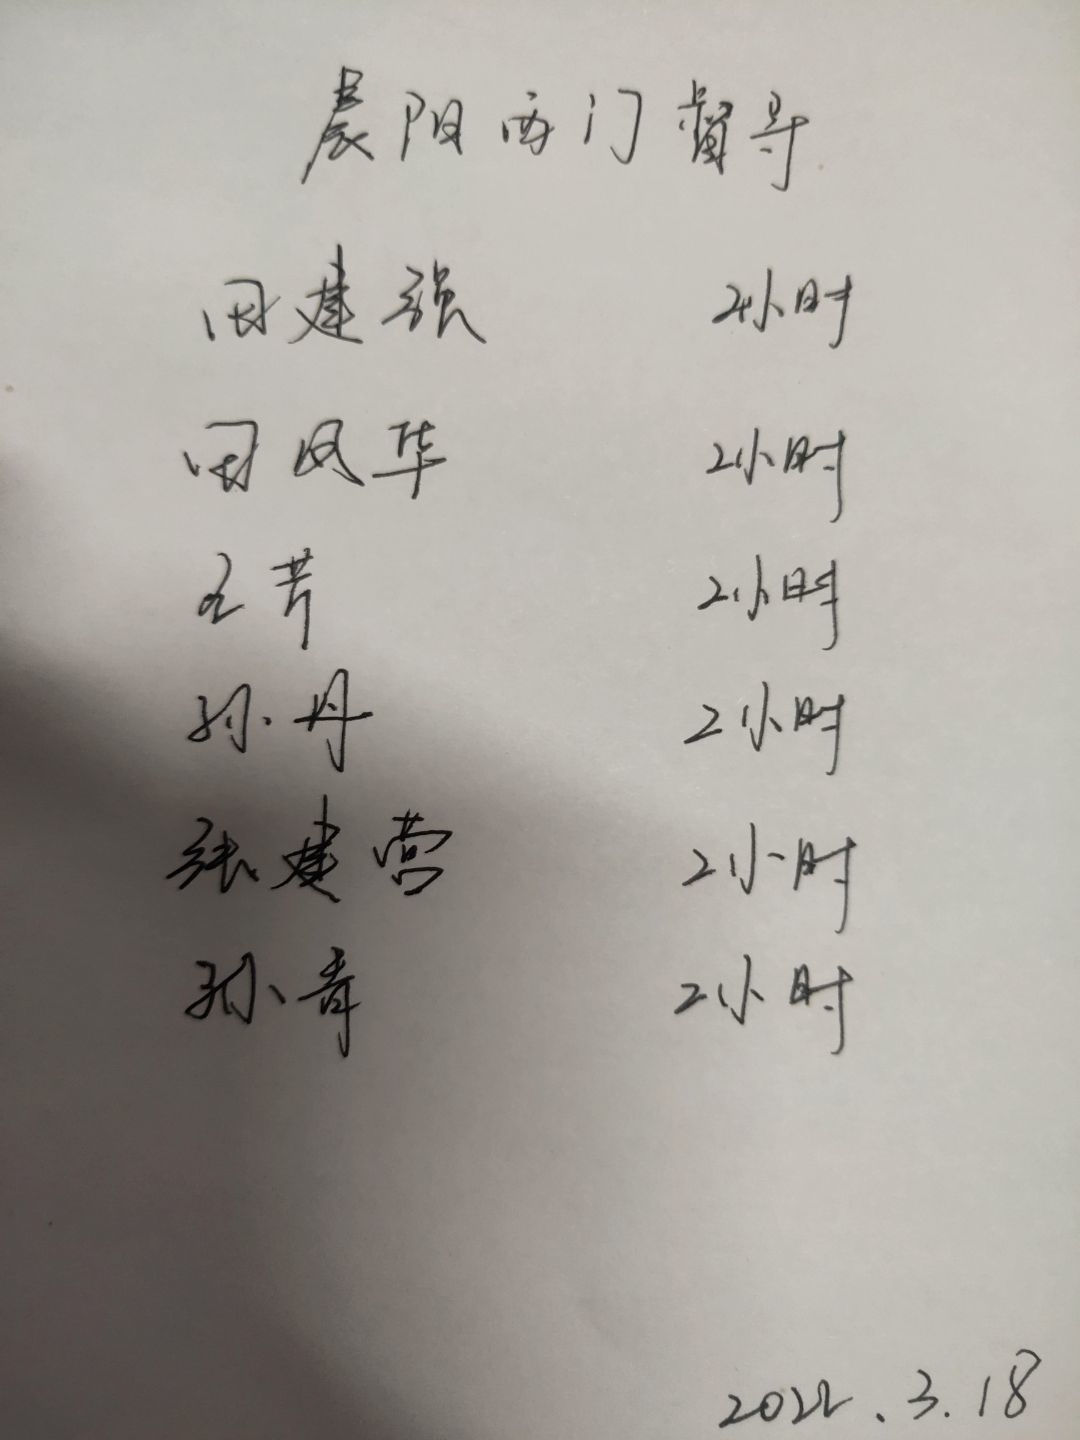 晨阳西门督导
田建强 2小时
田凤华 2小时
王芹 2小时
孙丹 2小时
张建营 2小时
孙青 2小时
2022.3.18